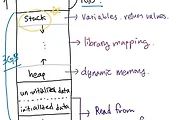 Stack
Variables. return values.
library mapping.
3GB
heap
dynamic memory.
uninitialized data
initialized data
Read from